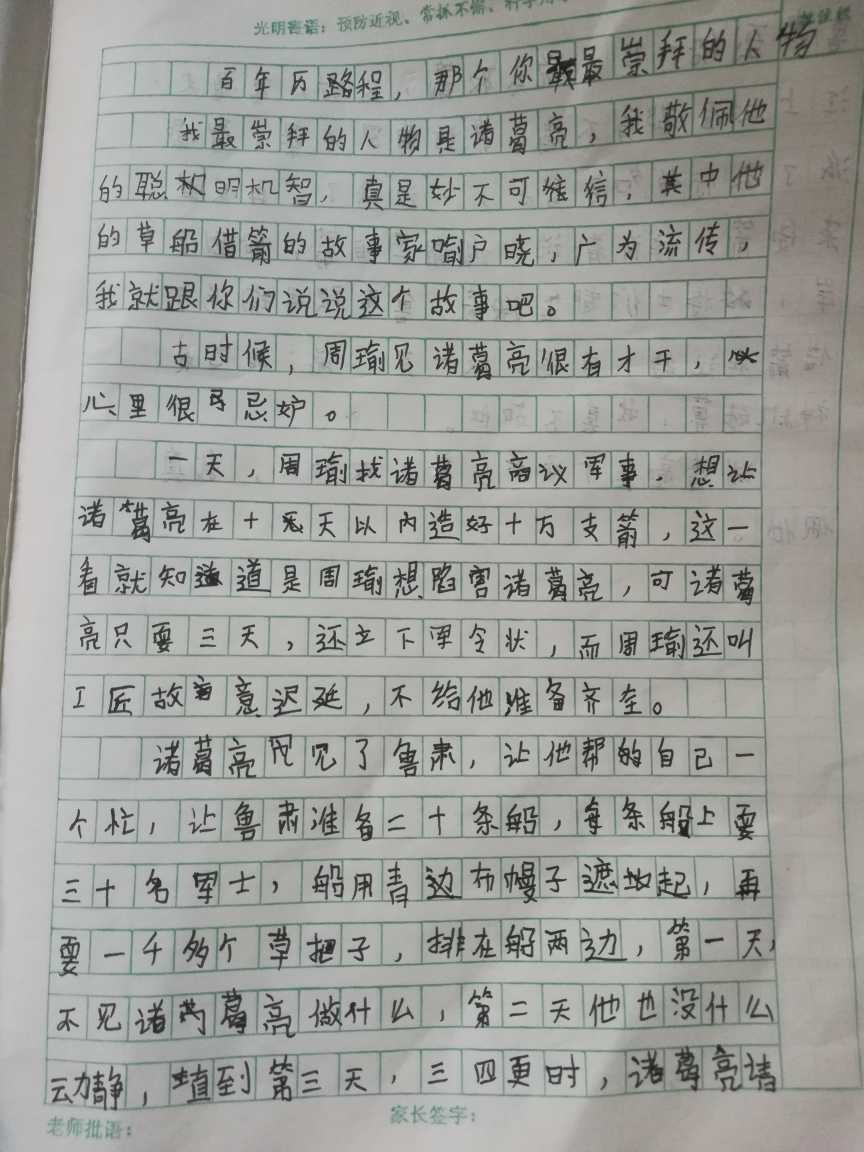 光明寄语：预防近视、常抓不懈、科学用
百年历路程，那个你最最崇拜的人物
我最崇拜的人物是诸葛亮，我敬佩他
的聪机明机智，真是妙不可维信，其中他
的草船借箭的故事家喻户晓，广为流传，
我就跟你们说说这个故事吧。
古时候，周瑜见诸葛亮很有才干，
心里很忌妒。
一天，周瑜找诸葛亮商议军事，想让
诸葛亮在十天以内造好十万支箭，这一
看就知道是周瑜想陷害诸葛亮，可诸葛
亮只要三天，还立下军令状，而周瑜还叫
工匠故意迟延，不给他准备齐全。
诸葛亮见了鲁肃，让他帮的自己一
个忙，让鲁肃准备二十条船，每条船上要
三十名军士，船用青边布幔子遮起，再
要一千多个草把子，排在船两边，第一天，
不见诸葛亮做什么，第二天他也没什么
动静，直到第三天，三四更时，诸葛亮请
老师批语：
家长签字：